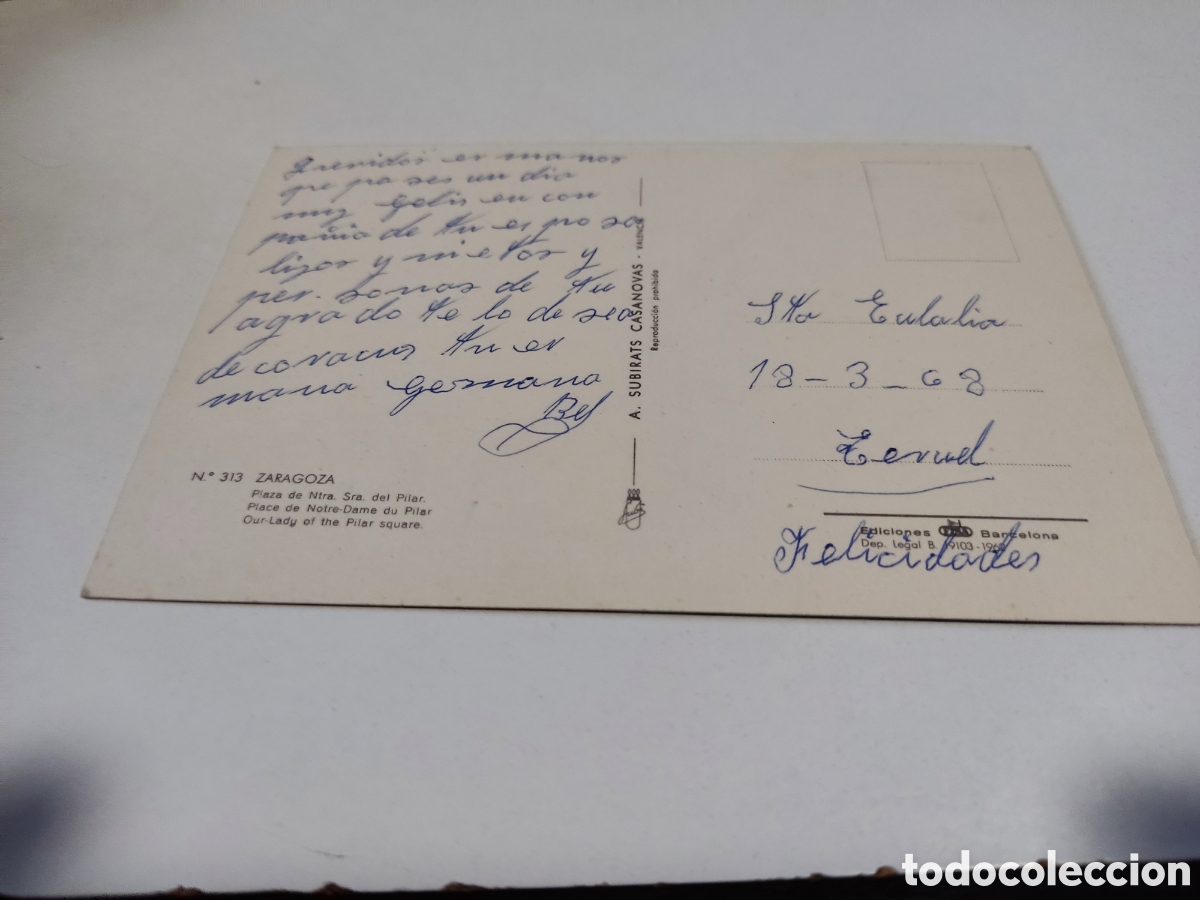 Queridos er manos
que pa ses un dia
muy Gelis en con
pañia de tu es po sa
lijos y nietos y
per. sonas de tu
agrado te lo desea
de coracus tu er
mana Germana
Bel
N.º 313 ZARAGOZA
Plaza de Ntra. Sra. del Pilar.
Place de Notre-Dame du Pilar
Our-Lady of the Pilar square.
A. SUBIRATS CASANOVAS - VALENCIA
Reproducción prohibida
Sta Eulalia
18-3-68
Teruel
Ediciones Barcelona
Dep. Legal B.
Felicidades
todocoleccion